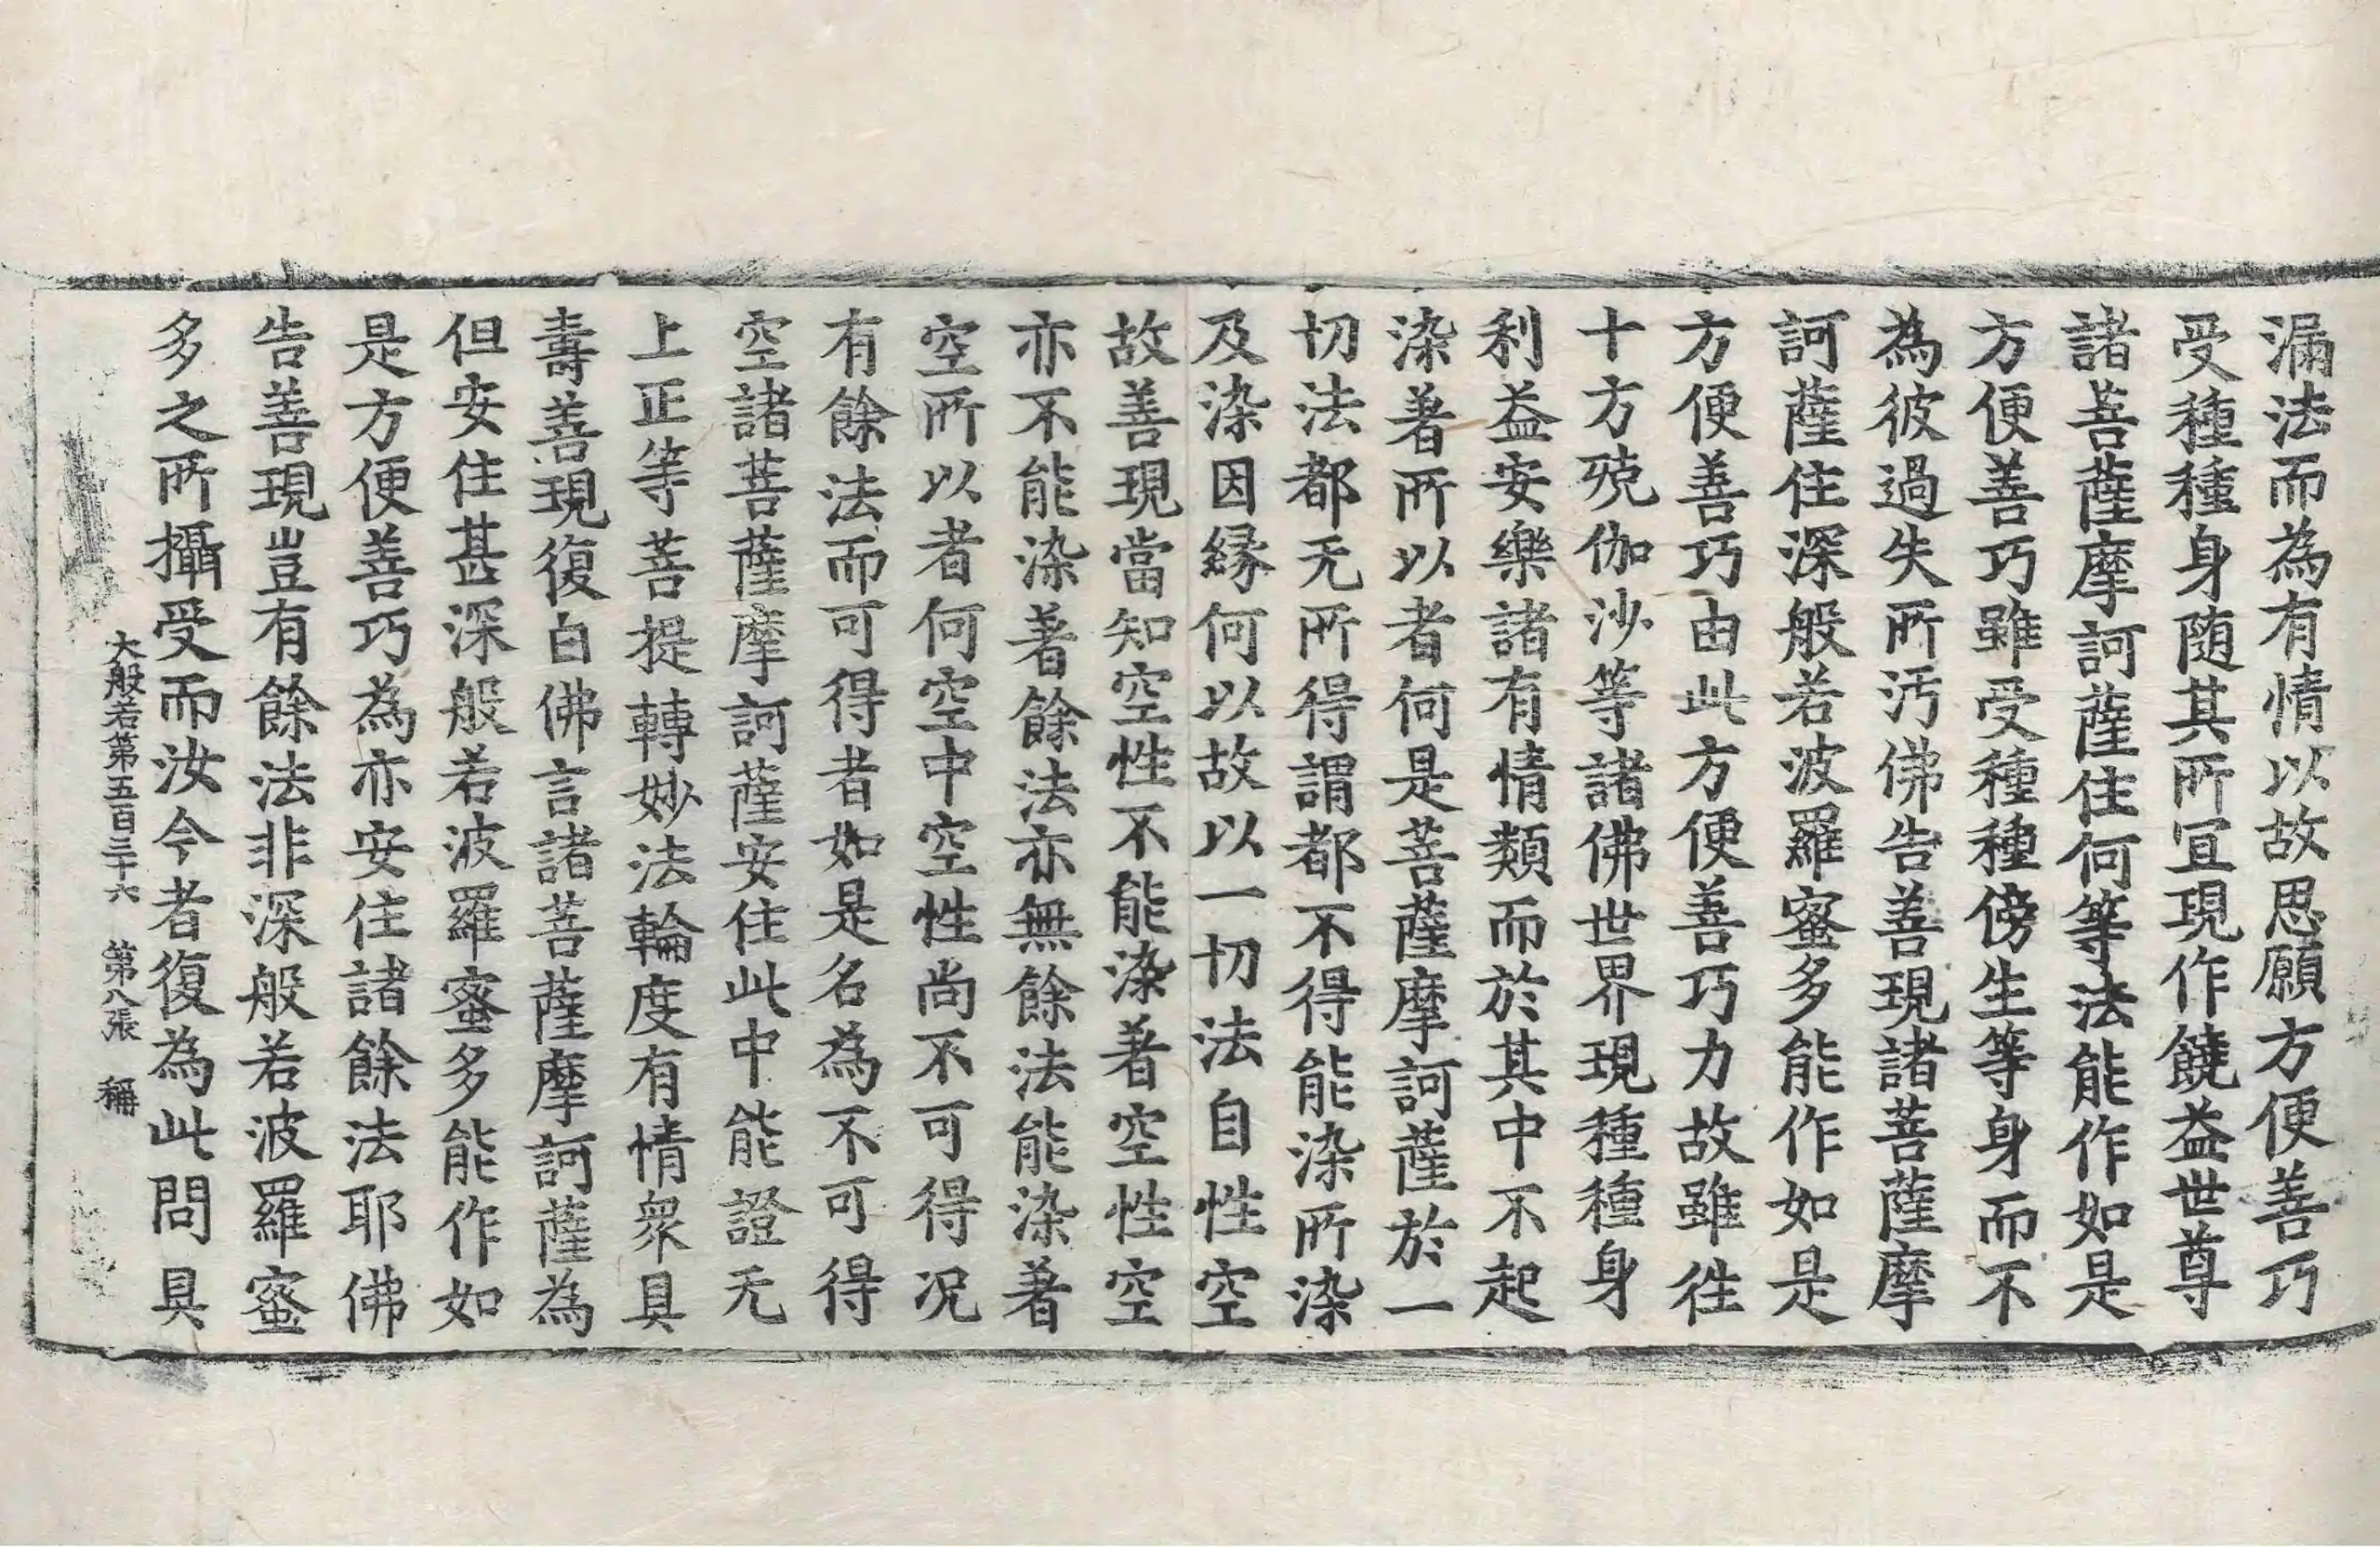 漏法而為有情以故思願方便善巧
受種種身随其所冝現作饒益世尊
諸菩薩摩訶薩住何等法能作如是
方便善巧雖受種種傍生等身而不
為彼過失所汚佛告善現諸菩薩摩
訶薩住深般若波羅蜜多能作如是
方便善巧由此方便善巧力故雖徃
十方殑伽沙等諸佛世界現種種身
利益安樂諸有情類而於其中不起
染著所以者何是菩薩摩訶薩於一
切法都无所得謂都不得能染所染
及染因縁何以故以一切法自性空
故善現當知空性不能染著空性空
亦不能染著餘法亦無餘法能染著
空所以者何空中空性尚不可得况
有餘法而可得者如是名為不可得
空諸菩薩摩訶薩安住此中能證无
上正等菩提轉妙法輪度有情衆具
壽善現復白佛言諸菩薩摩訶薩為
但安住甚深般若波羅蜜多能作如
是方便善巧為亦安住諸餘法耶佛
告善現豈有餘法非深般若波羅蜜
多之所攝受而汝今者復為此問具
大般若第五百三十六 第八張 稱